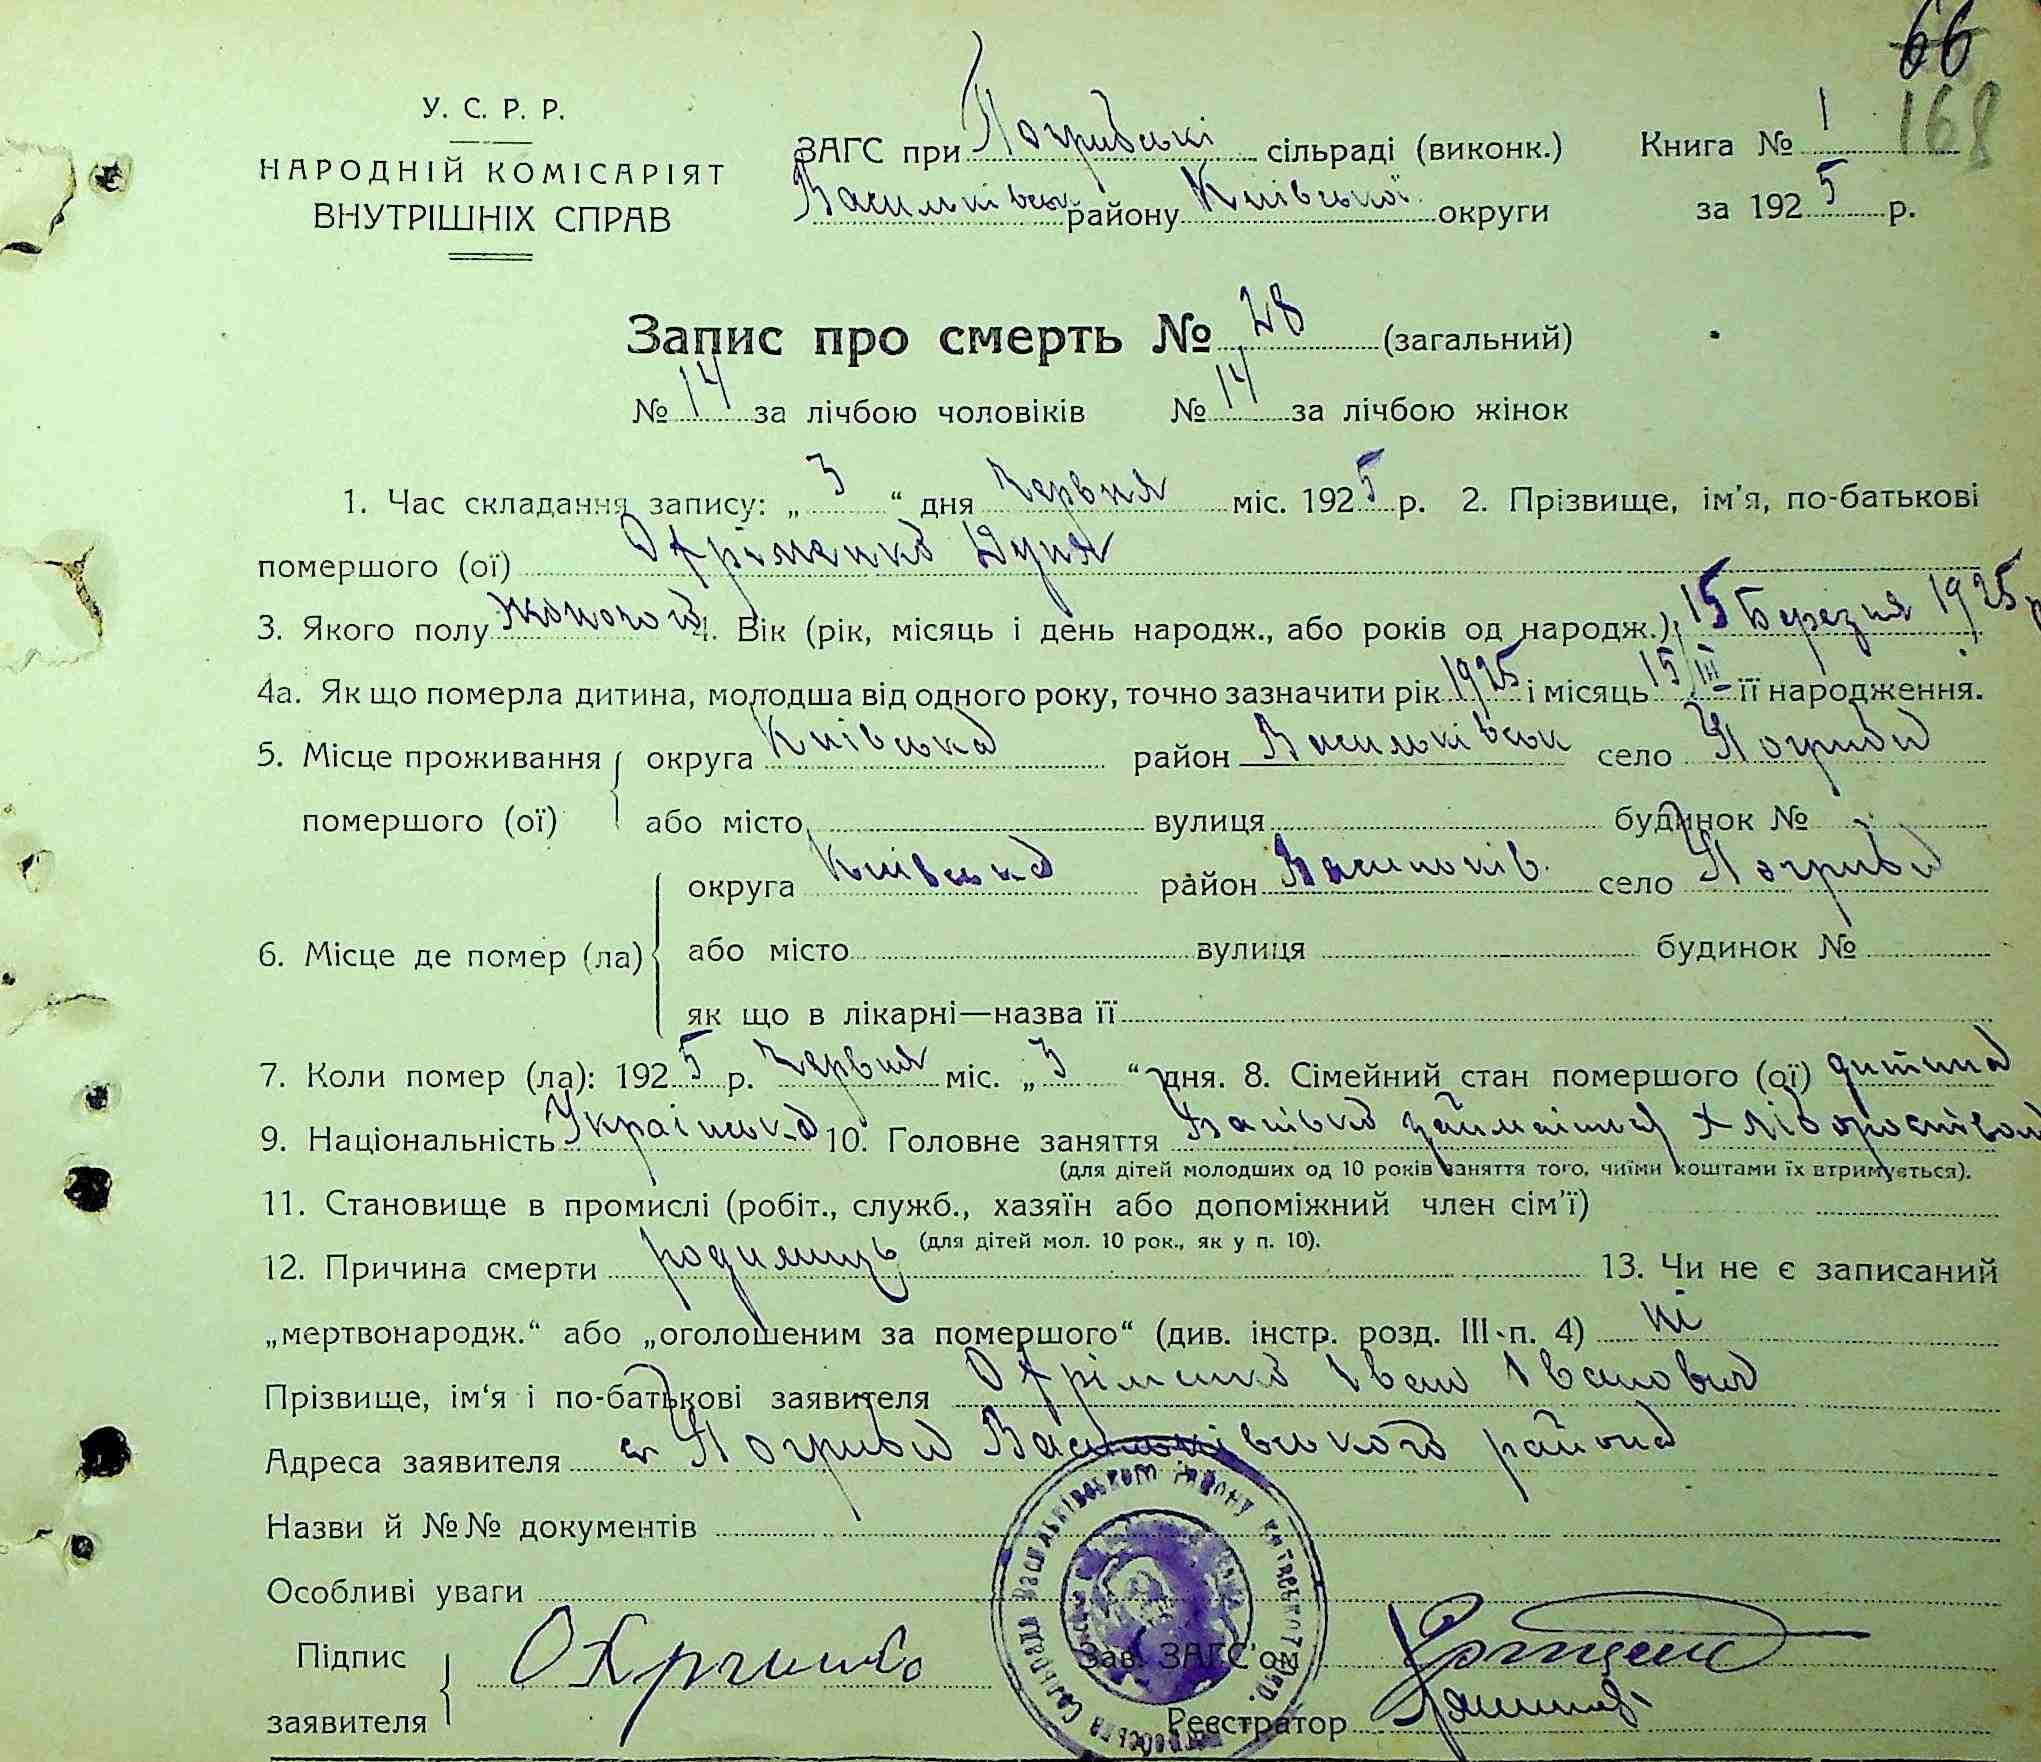 66
168
У. С. Р. Р.
НАРОДНІЙ КОМІСАРІЯТ
ВНУТРІШНІХ СПРАВ
ЗАГС при Погрибські сільраді (виконк.) Книга № 1
Васильківськ району Київської округи за 1925 р.
Запис про смерть № 28 (загальний)
№ 14 за лічбою чоловіків № 14 за лічбою жінок
1. Час складання запису: „ 3 “ дня Червня міс. 1925 р. 2. Прізвище, ім'я, по-батькові
помершого (ої) Охріменко Дуня
3. Якого полу жоночої 4. Вік (рік, місяць і день народж., або років од народж.) 15 Березня 1925 р
4а. Як що померла дитина, молодша від одного року, точно зазначити рік 1925 і місяць 15/III її народження.
5. Місце проживання округа Київська район Васильківськ село Погриби
помершого (ої) або місто вулиця будинок №
округа Київська район Васильків. село Погриби
6. Місце де помер (ла) або місто вулиця будинок №
як що в лікарні—назва її
7. Коли помер (ла): 1925 р. Червня міс. „ 3 “ дня. 8. Сімейний стан помершого (ої) дитина
9. Національність Українська 10. Головне заняття Батько займаїться хліборобством
(для дітей молодших од 10 років заняття того, чиїми коштами їх втримується).
11. Становище в промислі (робіт., служб., хазяїн або допоміжний член сім'ї)
(для дітей мол. 10 рок., як у п. 10).
12. Причина смерти родимець 13. Чи не є записаний
„мертвонародж.“ або „оголошеним за помершого“ (див. інстр. розд. III п. 4) ні
Прізвище, ім'я і по-батькові заявителя Охріменко Іван Іванович
Адреса заявителя с. Погриби Васильківського района
Назви й №№ документів
Особливі уваги
Підпис
заявителя
Зав. ЗАГС'ом
Реєстратор